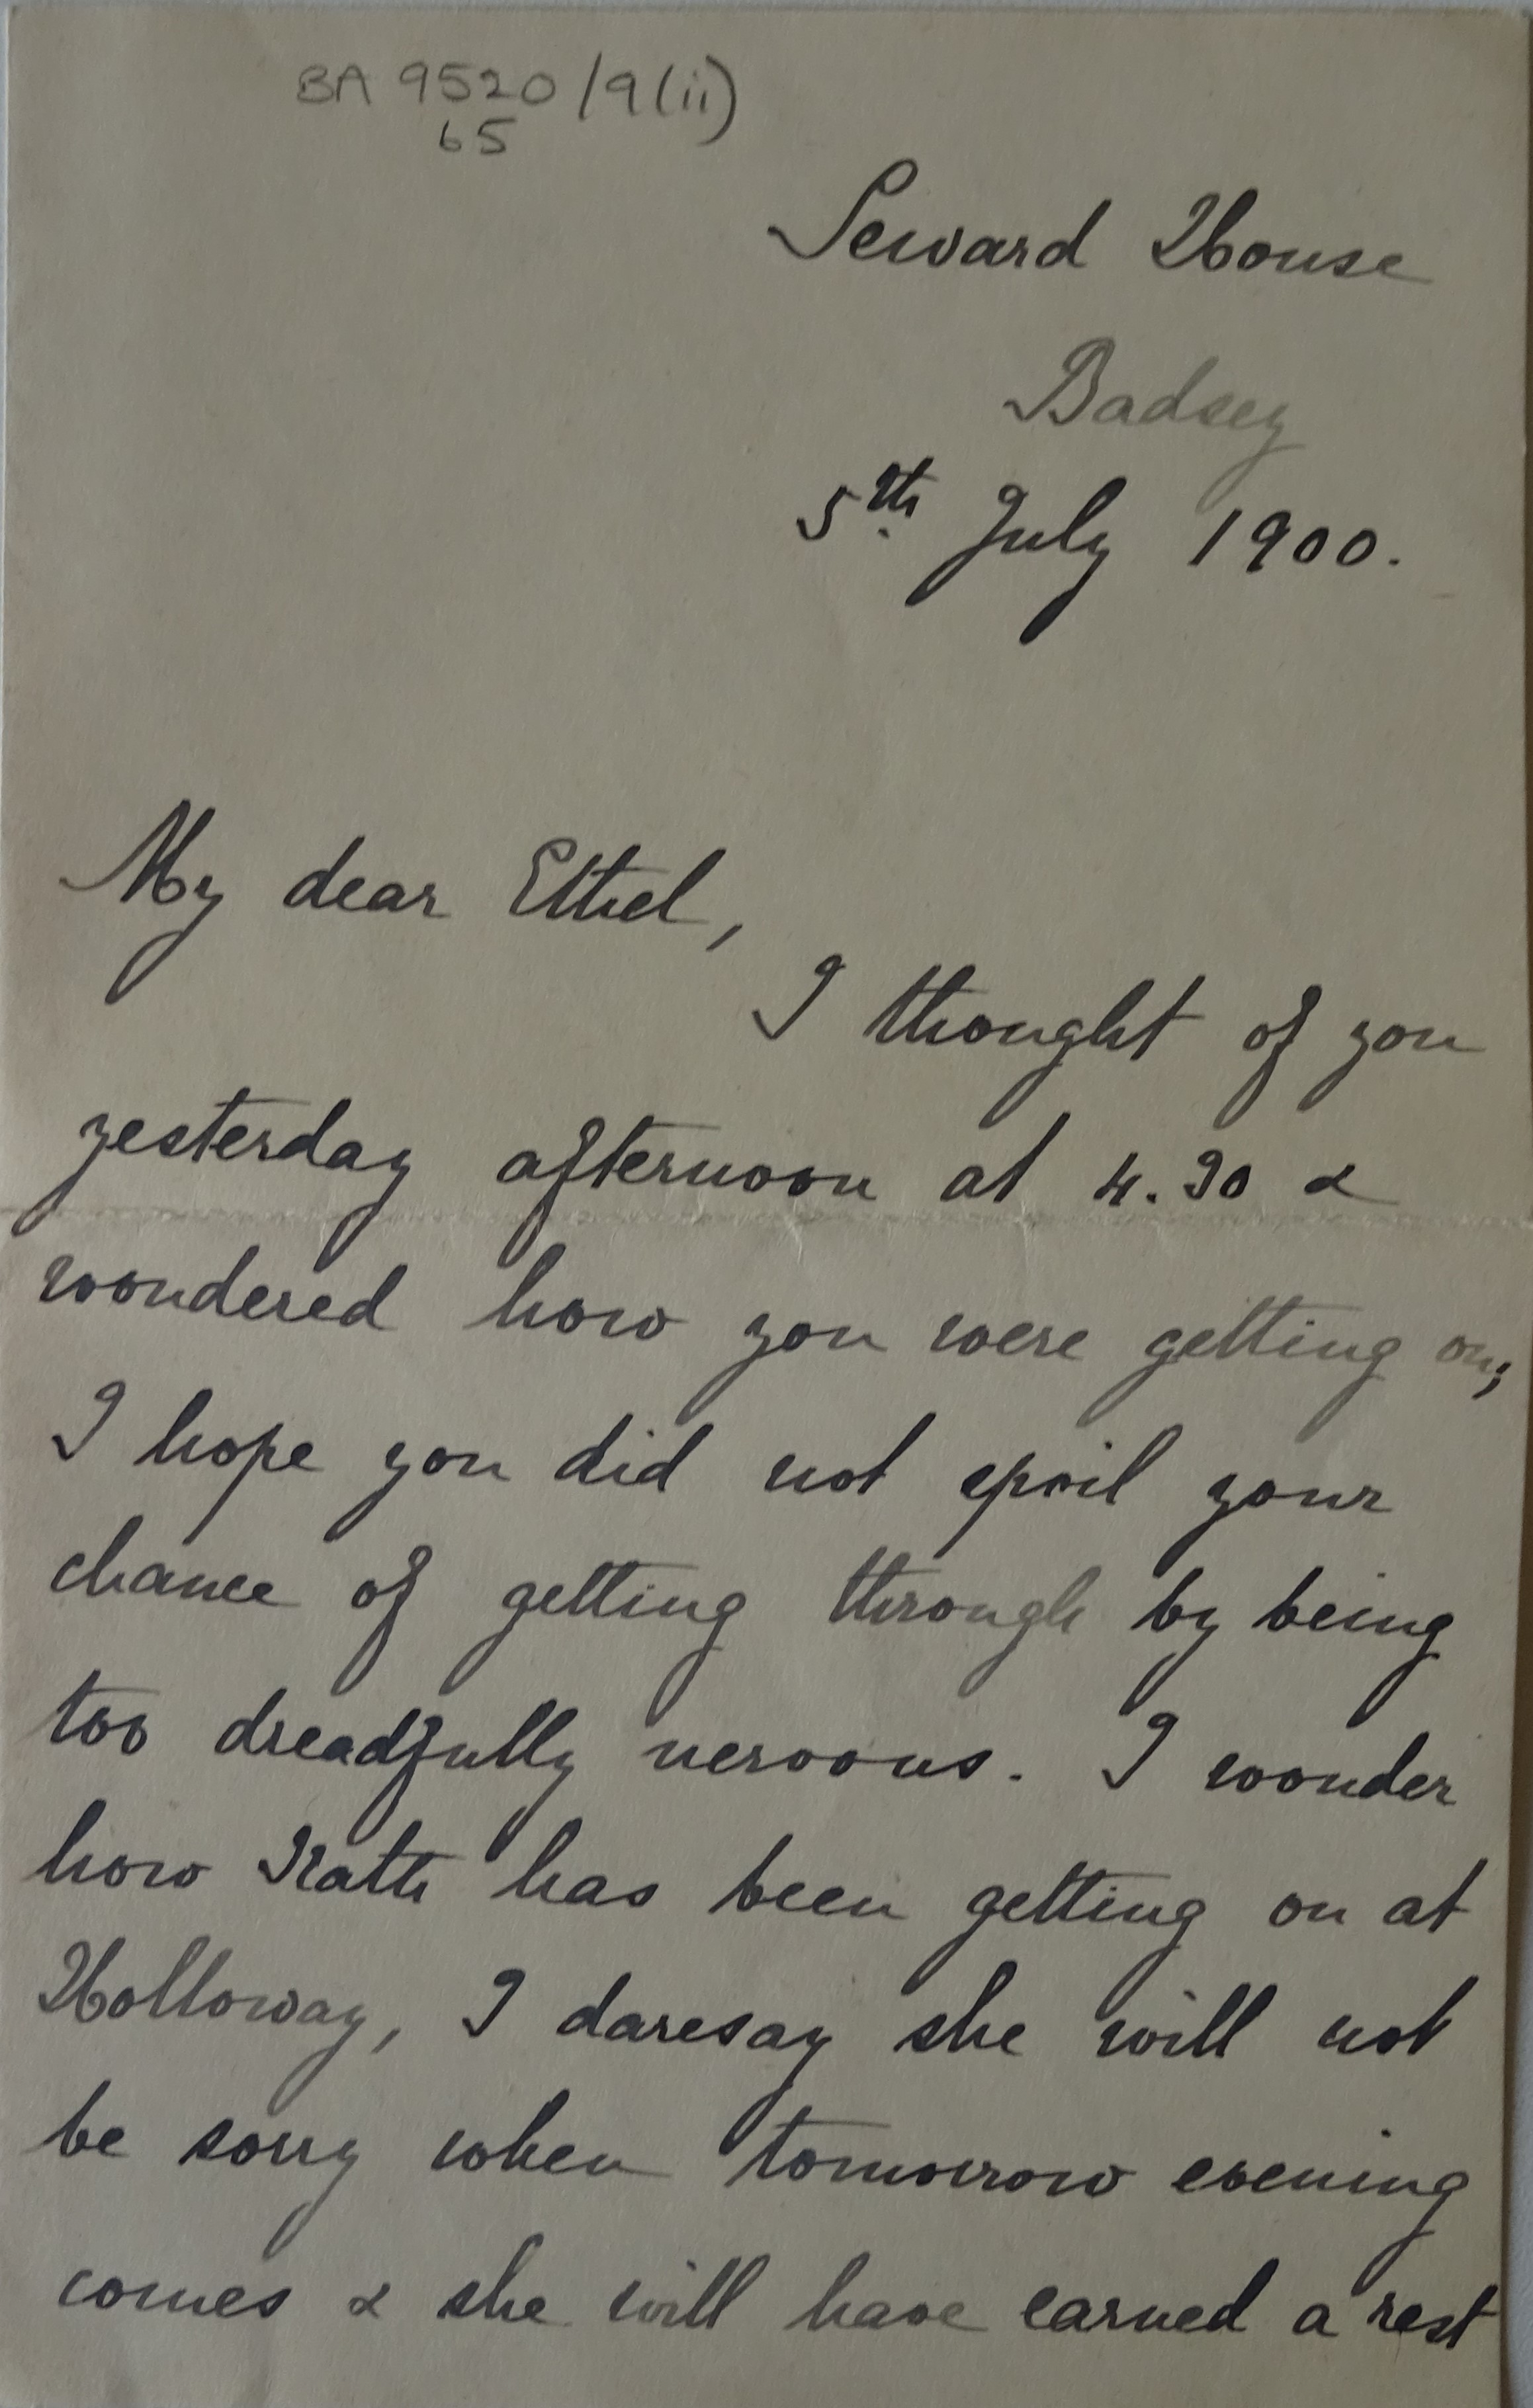 BA 9520/9(ii)
65
Seward House
Badsey
5th July 1900.
My dear Ethel,
I thought of you
yesterday afternoon at 4.30 &
wondered how you were getting on;
I hope you did not spoil your
chance of getting through by being
too dreadfully nervous. I wonder
how Kath has been getting on at
Holloway, I daresay she will not
be sorry when tomorrow evening
comes & she will have earned a rest